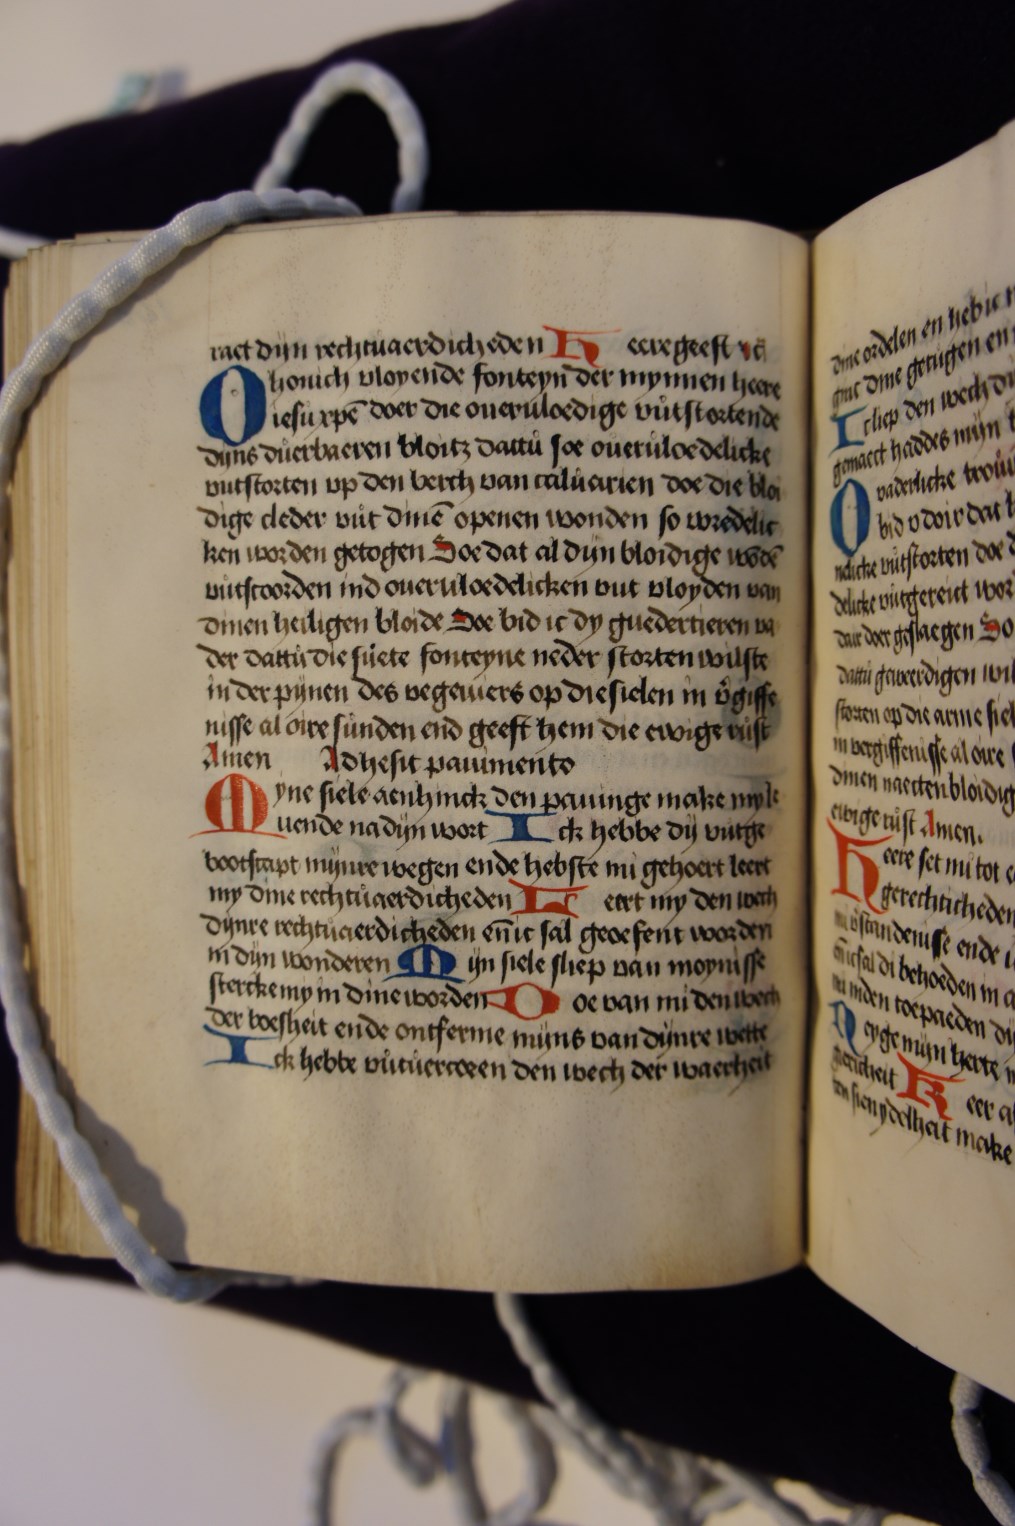 raet dijn rechtuaerdicheden Heere geeft
O honich vloyende fonteyn der mynnen heere
iesu xpē doer die oueruloedige vůtstortende
dijns důerbaeren bloitz dattů soe oueruloedelicke
vutstorten vp den berch van caluarien doe die bloi
dige cleder vůt dinē openen wonden so wredelic
ken worden getogen Soe dat al dijn bloidige
vůtstoorden ind oueruloedelicken vut vloyden van
dinen heiligen bloide Soe bid ic dy guedertieren va
der dattů die sůete fonteyne neder storten wilste
in der pijnen des vegeuiers op die sielen in v̄giffe
nisse al oire sůnden end geeft hem die ewige růst
Amen Adhesit pauimento
Myne siele aenhinck den pauinge make my le
uende na dijn wort Ick hebbe dij vutge
bootscapt mijnre wegen ende hebste mi gehoert leert
my dine rechtůaerdicheden Leert my den wech
dijnre rechtuaerdicheden en̄ ic sal geoefent woorden
in dijn wonderen Mijn siele sliep van moynisse
stercke my in dine worden Doe van mi den wech
der boesheit ende ontferme mijns van dijnre wette
Ick hebbe vůtůercoeren den wech der waerheit
dine ordelen en heb ic
dine getugen en
Ic liep den wech
gemaect haddes mijn
O vaderlicke
bid v doir dat
vůtstorten doe
delicke vůtgereict
doer geslaegen So
dattů geweerdigen
storten op die arme
in vergiffenisse al oire
dinen naecten bloidig
ewige růst Amen.
Heere set mi tot
gerechticheden
ende
sal di behoeden in
minden toepaeden
Neyge mijn herte
Keer
sien ydelheit make